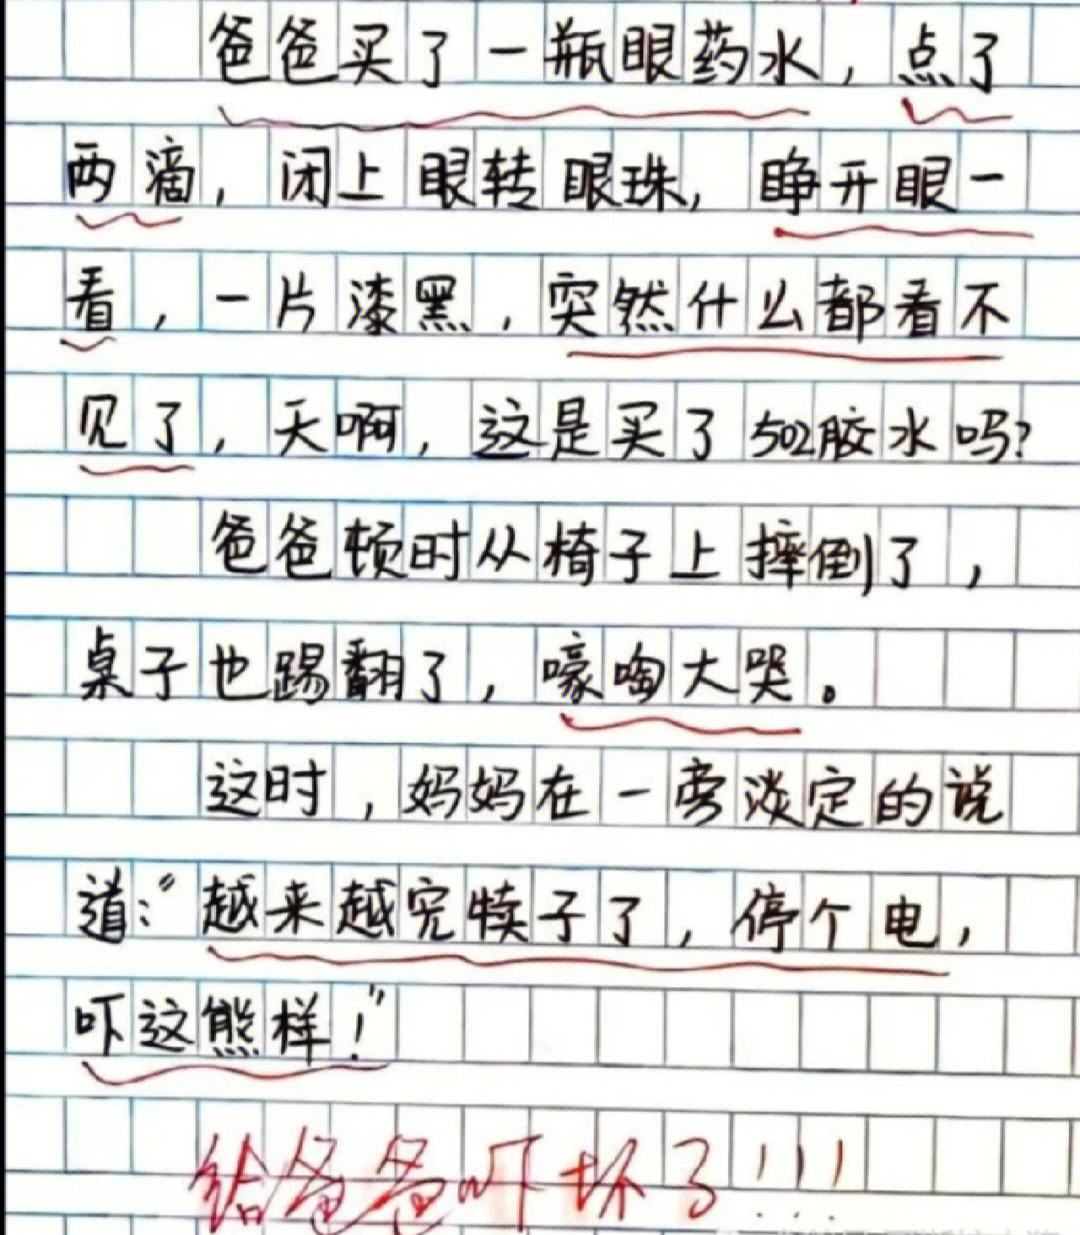 爸爸买了一瓶眼药水，点了
两滴，闭上眼转眼珠，睁开眼一
看，一片漆黑，突然什么都看不
见了，天啊，这是买了502胶水吗?
爸爸顿时从椅子上摔倒了，
桌子也踢翻了，嚎啕大哭。
这时，妈妈在一旁淡定的说
道:“越来越完犊子了，停个电，
吓这熊样!”
给爸爸吓坏了!!!